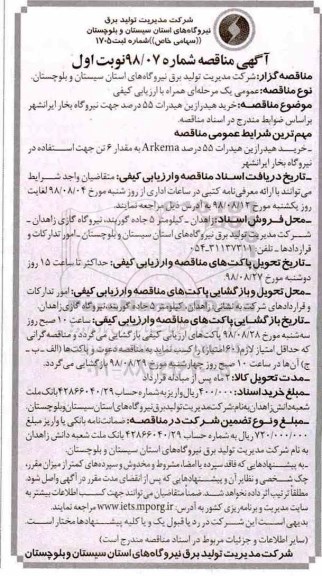 شرکت مدیریت تولید برق
نیروگاه‌های استان سیستان و بلوچستان
((سهامی خاص)) شماره ثبت ۱۷۰۵
آگهی مناقصه شماره ۹۸/۰۷ نوبت اول
مناقصه گزار: شرکت مدیریت تولید برق نیروگاه‌های استان سیستان و بلوچستان.
نوع مناقصه: عمومی یک مرحله‌ای همراه با ارزیابی کیفی
موضوع مناقصه: خرید هیدرازین هیدرات ۵۵ درصد جهت نیروگاه بخار ایرانشهر
براساس ضوابط مندرج در اسناد مناقصه.
مهم ترین شرایط عمومی مناقصه
ـ خرید هیدرازین هیدرات ۵۵ درصد Arkema به مقدار ۶ تن جهت استفاده در
نیروگاه بخار ایرانشهر
ـ تاریخ دریافت اسناد مناقصه و ارزیابی کیفی: متقاضیان واجد شرایط
می‌توانند با ارائه معرفی‌نامه کتبی در ساعات اداری از روز شنبه مورخ ۹۸/۰۸/۰۴ لغایت
روز یکشنبه مورخ ۹۸/۰۸/۱۲ به آدرس ذیل مراجعه نمایند.
ـ محل فروش اسناد: زاهدان ـ کیلومتر ۵ جاده گوربند، نیروگاه گازی زاهدان ـ
شرکت مدیریت تولید برق نیروگاه‌های استان سیستان و بلوچستان ـ امور تدارکات و
قراردادها ـ تلفن: ۳۱۱۳۷۳۱۱-۰۵۴
ـ تاریخ تحویل پاکت‌های مناقصه و ارزیابی کیفی: حداکثر تا ساعت ۱۵ روز
دوشنبه مورخ ۹۸/۰۸/۲۷
ـ محل تحویل و بازگشایی پاکت‌های مناقصه و ارزیابی کیفی: امور تدارکات
و قراردادهای شرکت به نشانی زاهدان، کیلومتر ۵ جاده گوربند، نیروگاه گازی زاهدان.
ـ تاریخ بازگشایی پاکت‌های مناقصه و ارزیابی کیفی: ساعت ۱۰ صبح روز
سه‌شنبه مورخ ۹۸/۰۸/۲۸ پاکت‌های ارزیابی کیفی بازگشایی می‌گردد و مناقصه گرانی
که حداقل امتیاز لازم (۶۰ امتیاز) را کسب نمایند به مناقصه دعوت و پاکت‌ها (الف ـ ب ـ
ج) آن‌ها در ساعت ۱۰ صبح روز چهارشنبه مورخ ۹۸/۰۸/۲۹ بازگشایی می‌گردد.
ـ مدت تحویل کالا: ۲ ماه پس از مبادله قرارداد
ـ مبلغ خرید اسناد: ۴۰۰/۰۰۰ ریال واریز به شماره حساب ۴۲۸۶۶۰۴۰/۲۹ بانک ملت
شعبه دانش زاهدان به‌نام شرکت مدیریت تولید برق نیروگاه‌های استان سیستان و بلوچستان.
ـ مبلغ و نوع تضمین شرکت در مناقصه: ضمانت‌نامه بانکی یا واریز مبلغ
۷۲۰/۰۰۰/۰۰۰ ریال به شماره حساب ۴۲۸۶۶۰۴۰/۲۹ بانک ملت شعبه دانش زاهدان
به نام شرکت مدیریت تولید برق نیروگاه‌های استان سیستان و بلوچستان.
ـ به پیشنهادهایی که فاقد سپرده یا امضاء، مشروط و مخدوش و سپرده‌های کمتر از میزان مقرر،
چک شخصی و نظایر آن و پیشنهادهایی که پس از انقضای مدت مقرر در آگهی واصل شود،
مطلقاً ترتیب اثر داده نخواهد شد. ضمناً متقاضیان می‌توانند جهت کسب اطلاعات بیشتر به
سایت مدیریت و برنامه‌ریزی کشور به آدرس: www.iets.mporg.ir مراجعه نمایند.
بدیهی است این شرکت در رد یا قبول یک و یا کلیه پیشنهادها مختار است.
(سایر اطلاعات و جزئیات مربوط در اسناد مناقصه مندرج است)
شرکت مدیریت تولید برق نیروگاه‌های استان سیستان و بلوچستان